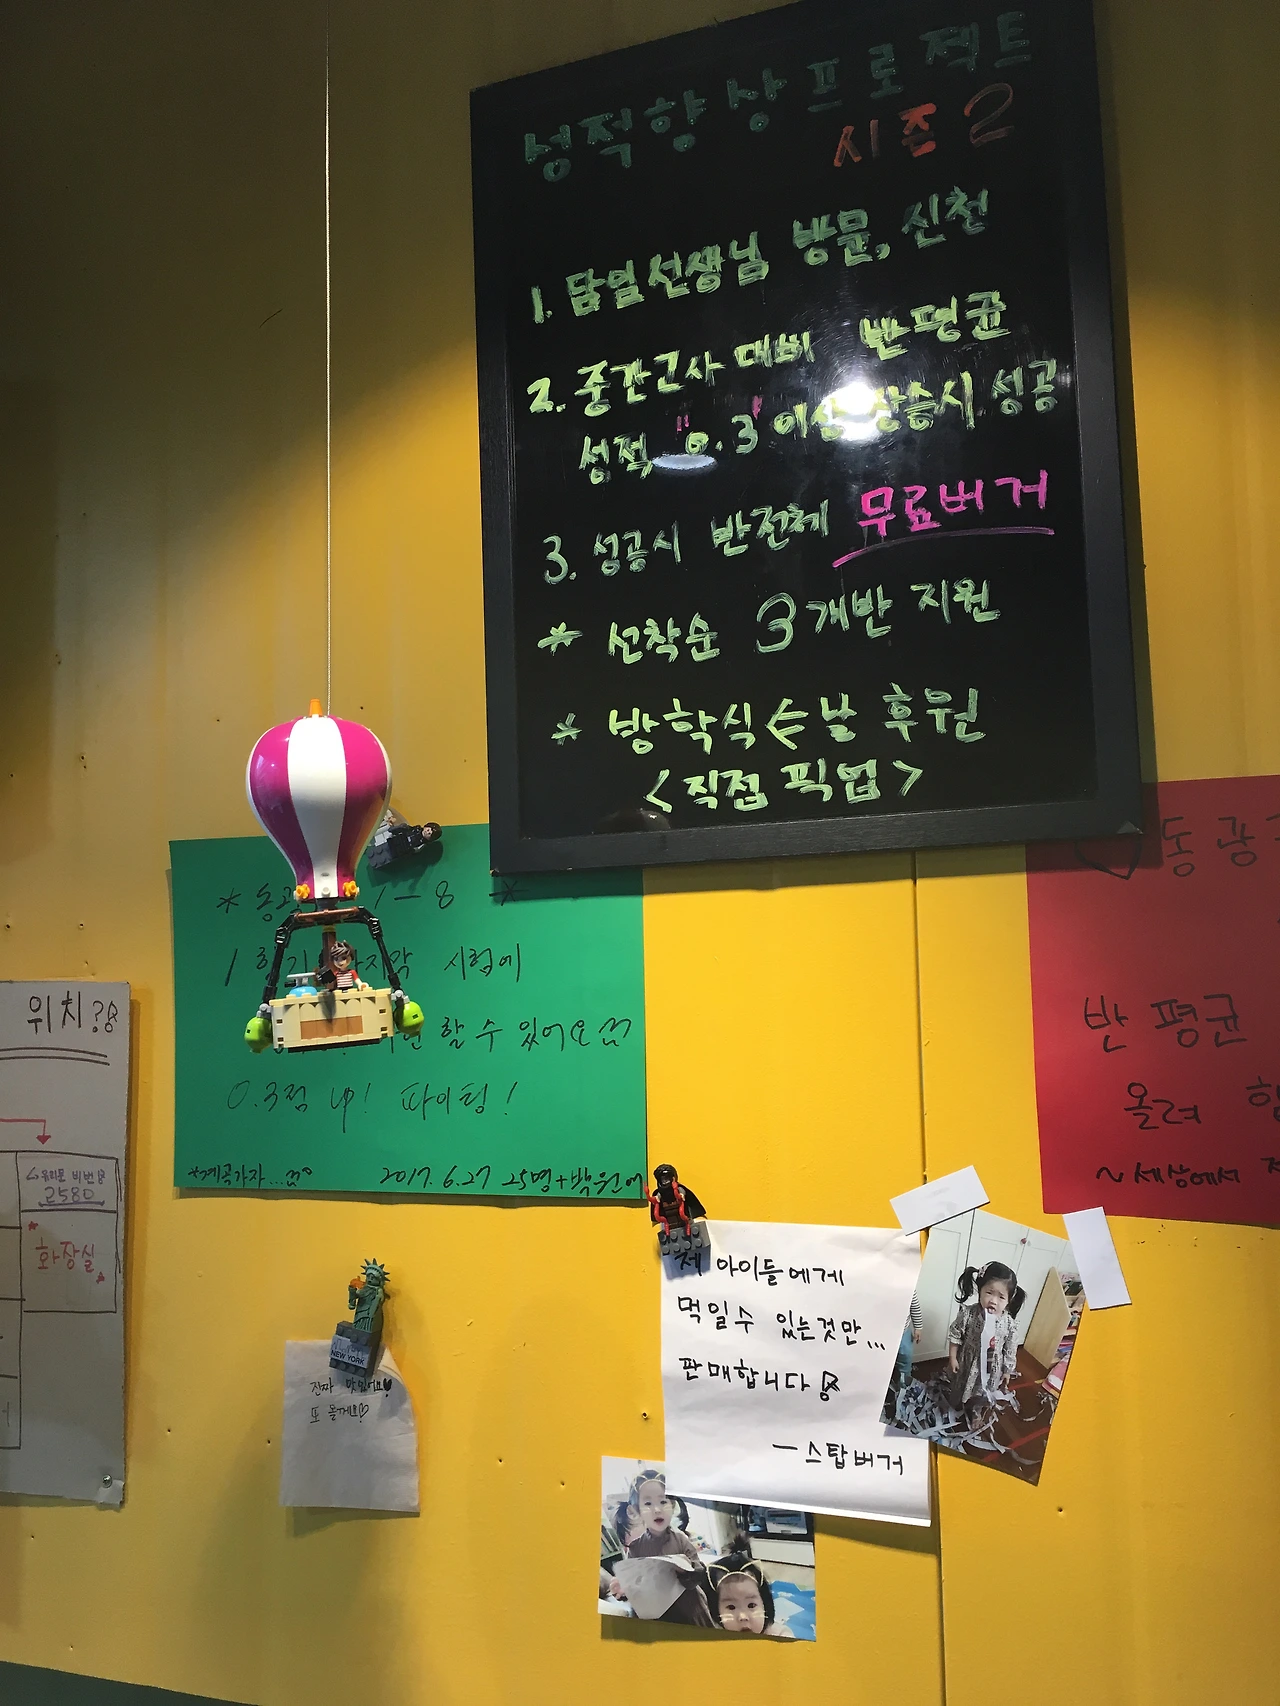 성적향상프로젝트
시즌2
1. 담임선생님 방문, 신천
2. 중간고사 대비 반평균
성적 "0.3" 이상 상승시 성공
3. 성공시 반전체 무료버거
* 선착순 3개반 지원
* 방학식 하는날 후원
<직접 픽업>
1-8 *
시험에
할 수 있어요
0.3점 up! 파이팅!
*계곡가자...
2017. 6. 27 25명+박원
동광
반 평균
올려
~세상에서
위치?
유리문 비번
2580
화장실
진짜 맛있어요♥
또 올게요♡
제 아이들에게
먹일수 있는것만...
판매합니다
- 스탑버거
NEW YORK